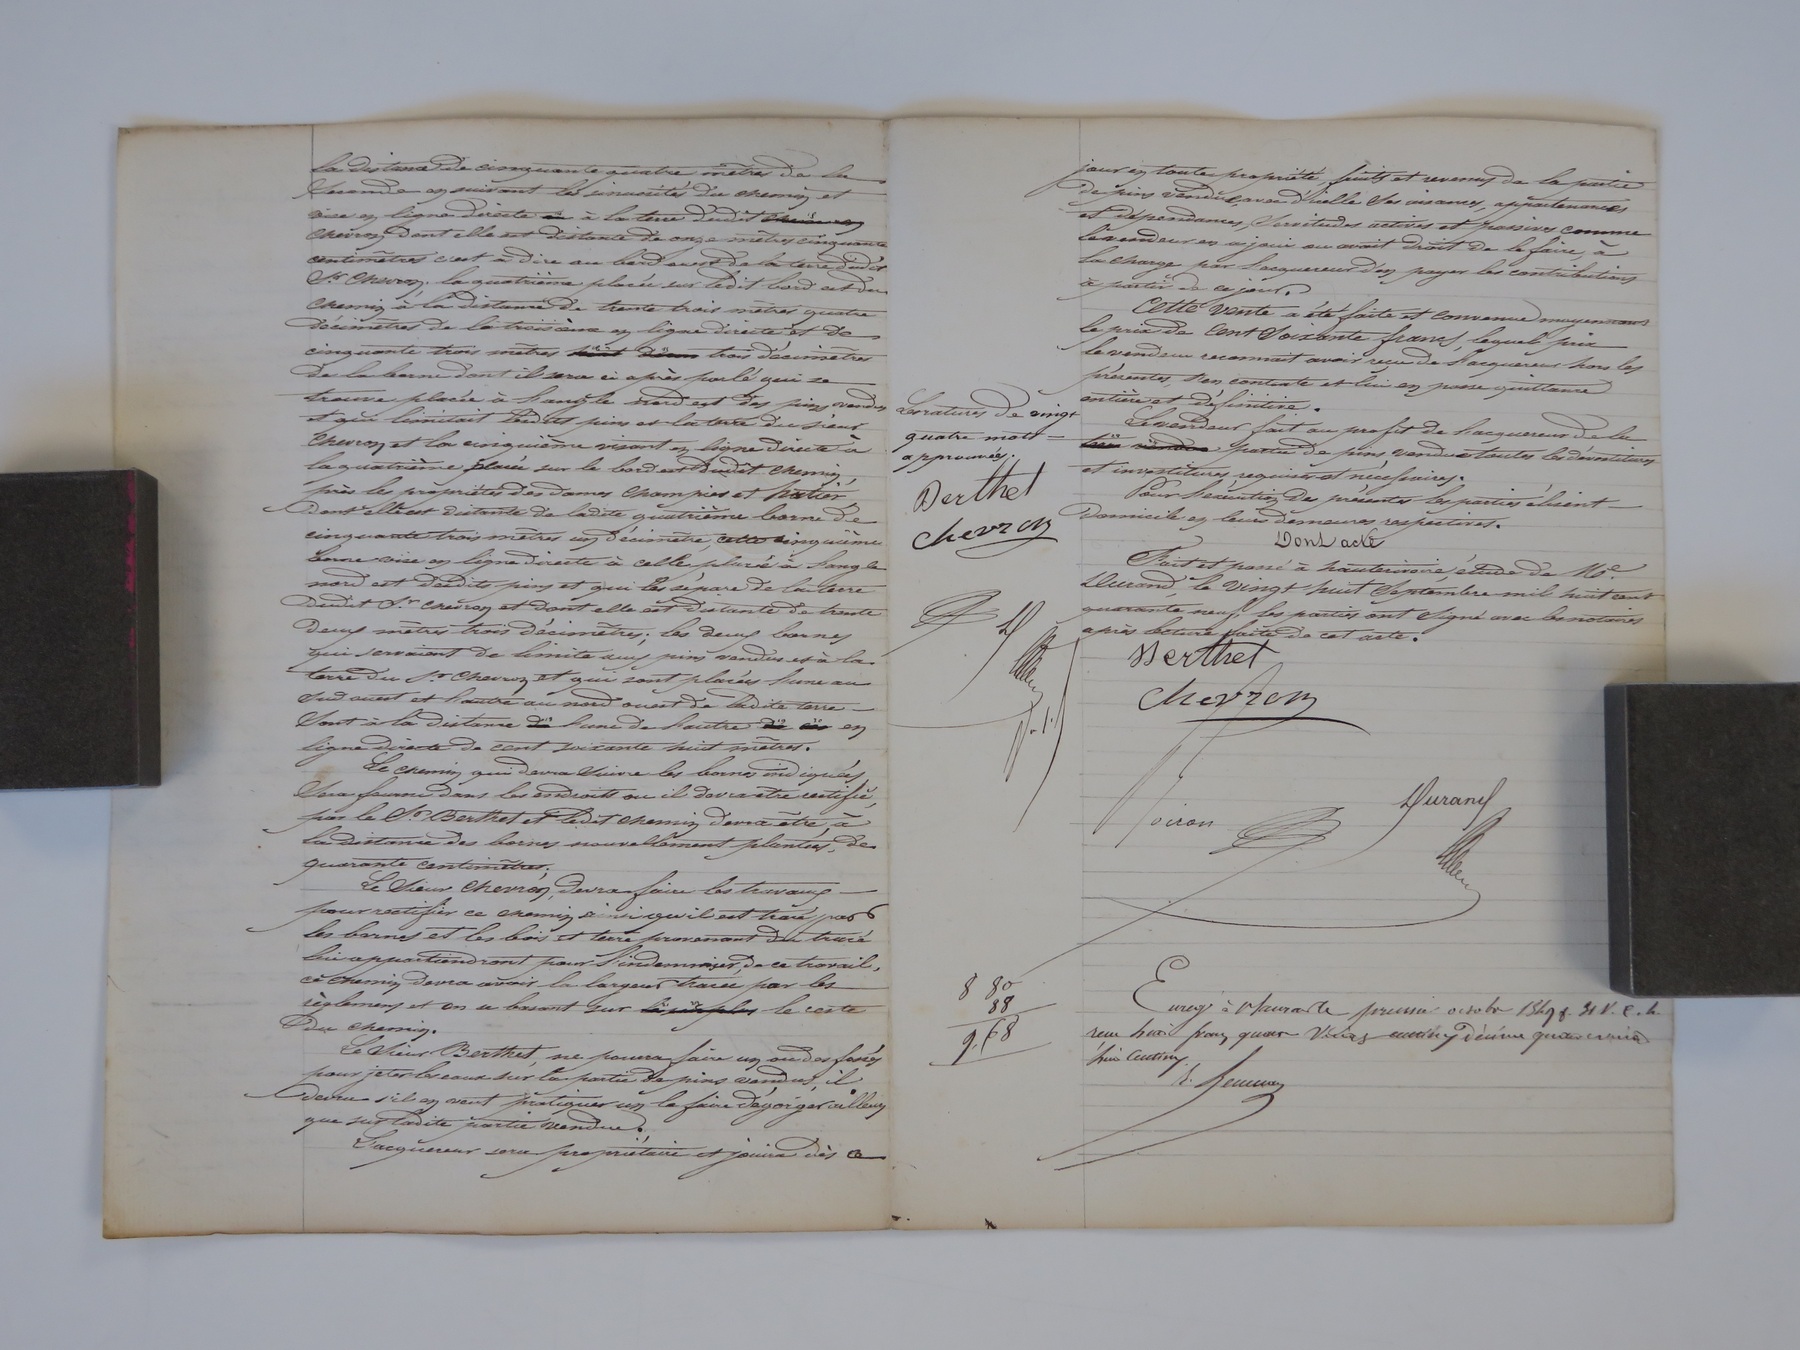 la distance de cinquante quatre mètres de la
seconde en suivant les sinuosités du chemin et
vise en ligne directe à la terre dudit
Chevron dont elle est distante de onze mètres cinquante
centimètres c'est à dire au bord ouest de la terre dudit
Sr Chevron. la quatrième placée sur ledit bord est du
chemin à la distance de trente trois mètres quatre
décimètres de la troisième en ligne directe et de
cinquante trois mètres trois décimètres
de la borne dont il sera ci après parlé qui se
trouve placée à l'angle nord est des pins vendus
et qui limitait lesdits pins et la terre du sieur
Chevron et la cinquième visant en ligne directe à
la quatrième placée sur le bord est dudit chemin,
près les propriétés des dames Champier et
dont elle est distante de ladite quatrième borne de
cinquante trois mètres un décimètre, cette cinquième
borne vise en ligne directe à celle placée à l'angle
nord est desdits pins et qui les sépare de la terre
dudit Sr Chevron et dont elle est distante de trente
deux mètres trois décimètres; les deux bornes
qui servaient de limite aux pins vendus et à la
terre du Sr Chevron et qui sont placées l'une au
sud ouest et l'autre au nord ouest de ladite terre
sont à la distance l'une de l'autre en
ligne directe de cent soixante huit mètres.
Le chemin qui devra suivre les bornes indiquées,
sera fourni dans les endroits ou il devra être rectifié,
par le Sr Berthet et ledit chemin devra être, à
la distance des bornes nouvellement plantées, de
quarante centimètres.
Le sieur Chevron, devra faire les travaux
pour rectifier ce chemin ainsi qu'il est tracé par
les bornes et les bois et terre provenant du tracé
lui appartiendront pour l'indemniser de ce travail,
ce chemin devra avoir la largeur tracée par les
règlemens et en se basant sur le reste
du chemin.
Le sieur Berthet, ne pourra faire un ou des fossés
pour jeter les eaux sur la partie de pins vendus, il
devra s'il en veut pratiquer un le faire dégorger ailleurs
que sur ladite partie vendue.
L'acquereur sera propriétaire et jouira dès ce
Les ratures de vingt
quatre mots
approuvées.
Berthet
Chevron
D
8 80
88
9,68
jour en toute propriété fruits et revenus de la partie
de pins vendue avec d'icelle ses aisances, appartenances
et dépendances, servitudes actives et passives comme
le vendeur en a joui ou avait droit de le faire, à
la charge par l'acquereur d'en payer les contributions
à partir de ce jour.
Cette vente a été faite et convenue moyennant
le prix de cent soixante francs, lequel prix
le vendeur reconnait avoir reçu de l'acquereur hors les
présentes, s'en contente et lui en passe quittance
entière et définitive.
Le vendeur fait au profit de l'acquereur de la
partie de pins vendue toutes les dévestitures
et investitures requises et nécessaires.
Pour l'exécution des présentes les parties élisent
domicile en leurs demeures respectives.
Dont acte
Fait et passé à hauterivoire étude de Me
Durand, le vingt huit septembre mil huit cent
quarante neuf, les parties ont signé avec les notaires
après lecture faite de cet acte.
Berthet
Chevron
Voiron
Durand
Enregé à premier octobre 1849 f. 31 V. C.
reçu huit francs quatre vingts centimes décime quatre vingt
huit centimes.